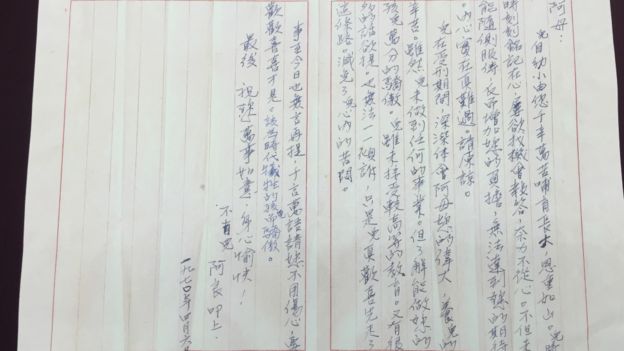 阿母：
兒自幼小由您千辛萬苦哺育長大 恩重如山。兒
時刻刻銘記在心，屢欲找機會報答，奈力不從心。不但未
能隨側服侍，反而增加妳的重擔，無法達到妳的期待
，內心實在真難過。請原諒。
兒在受刑期間，深深体會阿母妳的偉大，養兒的
辛苦。雖然兒未做到任何的事業。但了解能做妳的
孩兒萬分的驕傲。兒雖未接受較高等的教育。又有很
多的話欲提。也無法一一傾訴，只是兒真歡喜先走了
這條路。減免了兒心內的苦悶。
事至今日也無言再提，千言萬語請妳不用傷心，要
歡歡喜喜才是。該為時代犧牲的孩兒驕傲。
最後 祝您萬事如意，身心愉快！
不肖兒
阿良叩上.
一九七〇年四月